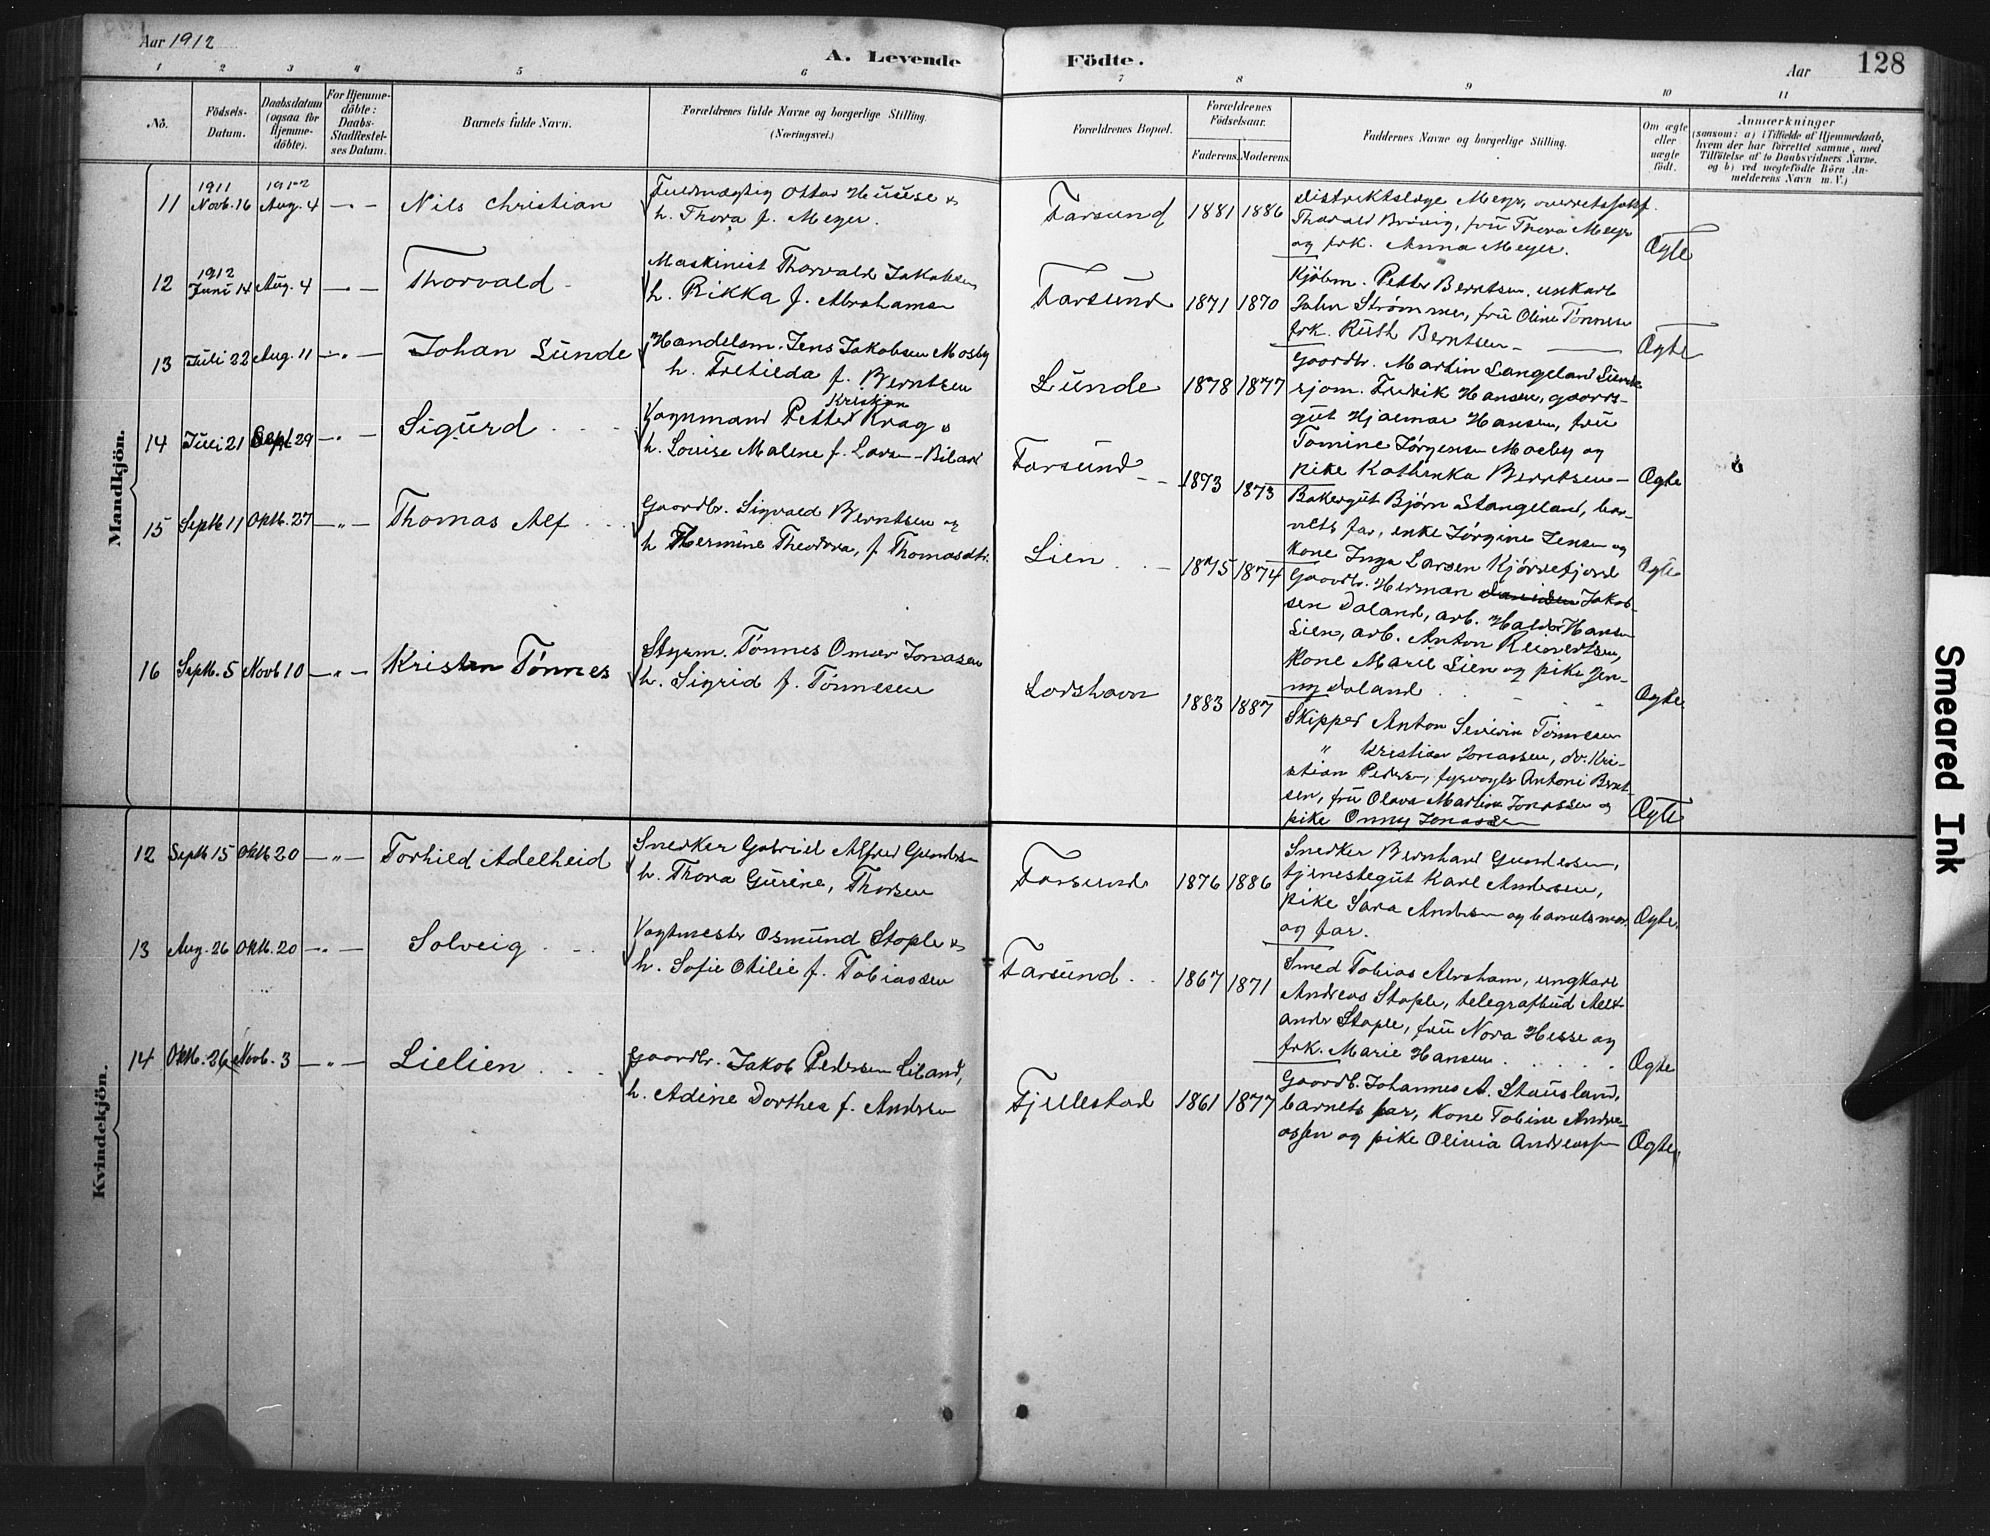 Aar 1912
A. Levende
Fødte.
Aar
128
1 2 3 4 5 6 7 8 9 10 11
No.
Fødsels-Datum.
Daabsdatum (ogsaa for Hjemme-døbte).
For Hjemme-døbte: Daabs-Stadfæstel-ses Datum.
Barnets fulde Navn.
Forældrenes fulde Navne og borgerlige Stilling.
(Næringsvei.)
Forældrenes Bopæl.
Forældrenes Fødselsaar.
Faderens.
Moderens.
Faddernes Navne og borgerlige Stilling.
Om ægte eller uægte født.
Anmærkninger
(saasom: a) i Tilfælde af Hjemmedaab,
hvem der har forrettet samme, med
Tilføielse af to Daabsvidners Navne.
og b) ved uægtefødte Børn An-
melderens Navn m. V.)
Mandkjön.
11 1911 Novb. 16 1912 Aug. 4 — " — Nils Christian
Fuldmægtig Ottar Huuse &
h. Thora f. Meyer.
Farsund 1881 1886
Distriktslæge Meyer, overretssakf.
Thorald Brøvig, frü Thora Meyer
og frk. Anna Meyer.
Ægte
12 1912 Juni 14 Aug. 4 — " — Thorvald
Maskinist Thorvald Jakobsen
h. Rikka f. Abrahamsen
Farsund 1871 1870
Kjøbm. Petter Berntsen, unkarl
John Strømmer, frü Oline Tönnesen
frk. Ruth Berntsen
Ægte
13 Juli 22 Aug. 11 — " — Johan Lunde
Handelsm. Jens Jakobsen Mosby
h. Tretilda f. Berntsen
Lunde 1878 1877
Gaardbr. Martin Langeland Lunde
sjøm. Fredrik Hansen, gaards-
gut Hjalmar Hansen, frü
Tomine Jørgensen Mosby og
pike Kathinka Berntsen
Ægte
14 Juli 21 Sept 29 — " — Sigurd
Kristian
Vognmand Petter Krag &
h. Louise Malene f. Larsen-
Farsund 1873 1873
Bakergut Bjørn Stangeland, bar-
nets far, enke Jørgine Jensen og
kone Inga Larsen Kjørrefjord
Ægte
15 Septb 11 Oktb. 27 — " — Thomas Alf
Gaardbr. Sigvald Berntsen og
h. Hermine Theodora, f. Thomasdtr.
Lien 1875 1874
Gaardbr. Herman Jakob-
sen Daland, arb. Halder Hansen
Lien, arb. Anton Reinertsen,
Kone Marie Lien og pike Jen-
ny Daland
Ægte
16 Septb. 5 Novb 10 — " — Kristen Tönnes
Styrm. Tönnes Omar Jonasen
h. Sigrid f. Tönnesen
Loshavn 1883 1887
Skipper Anton Severin Tönnesen
" Kristian Jonassen, do. Kri-
stian Pedersen, fyrvogts Antoni Bernt-
sen, frü Olava Martine Jonassen og
pike Onny Jonassen
Ægte
Kvindekjön.
12 Septb 15 Oktb 20 — " — Torhild Adelheid
Snedker Gabriel Alfred Gundersen
h. Thora Gurine, Thorsen
Farsund 1876 1886
Snedker Bernhard Gundersen,
tjenestegut Karl Andersen,
pike Sara Andersen og barnets mor
og far.
Ægte.
13 Aug. 26 Oktb. 20 — " — Solveig
Vagtmester Osmund Stople &
h. Sofie Otilie f. Tobiassen
Farsund 1867 1871
Smed Tobias Abraham, ungkarl
Andreas Stople, telegrafbud Aleks-
ander Stople, frü Nora Hesse og
frk. Marie Hansen
Ægte
14 Oktb. 26 Novb. 3 — " — Lielien
Gaardbr. Jakob Pedersen Liland,
h. Adine Dorthea f. Andersen
Fjellestad 1861 1877
Gaardb. Johannes A. Stausland,
barnets far, kone Tobine Andre-
assen og pike Olivia Andreassen
Ægte
Smeared Ink